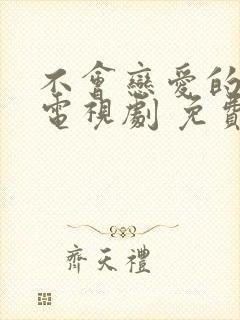 不會戀愛的
電視劇 免費
齊天禮